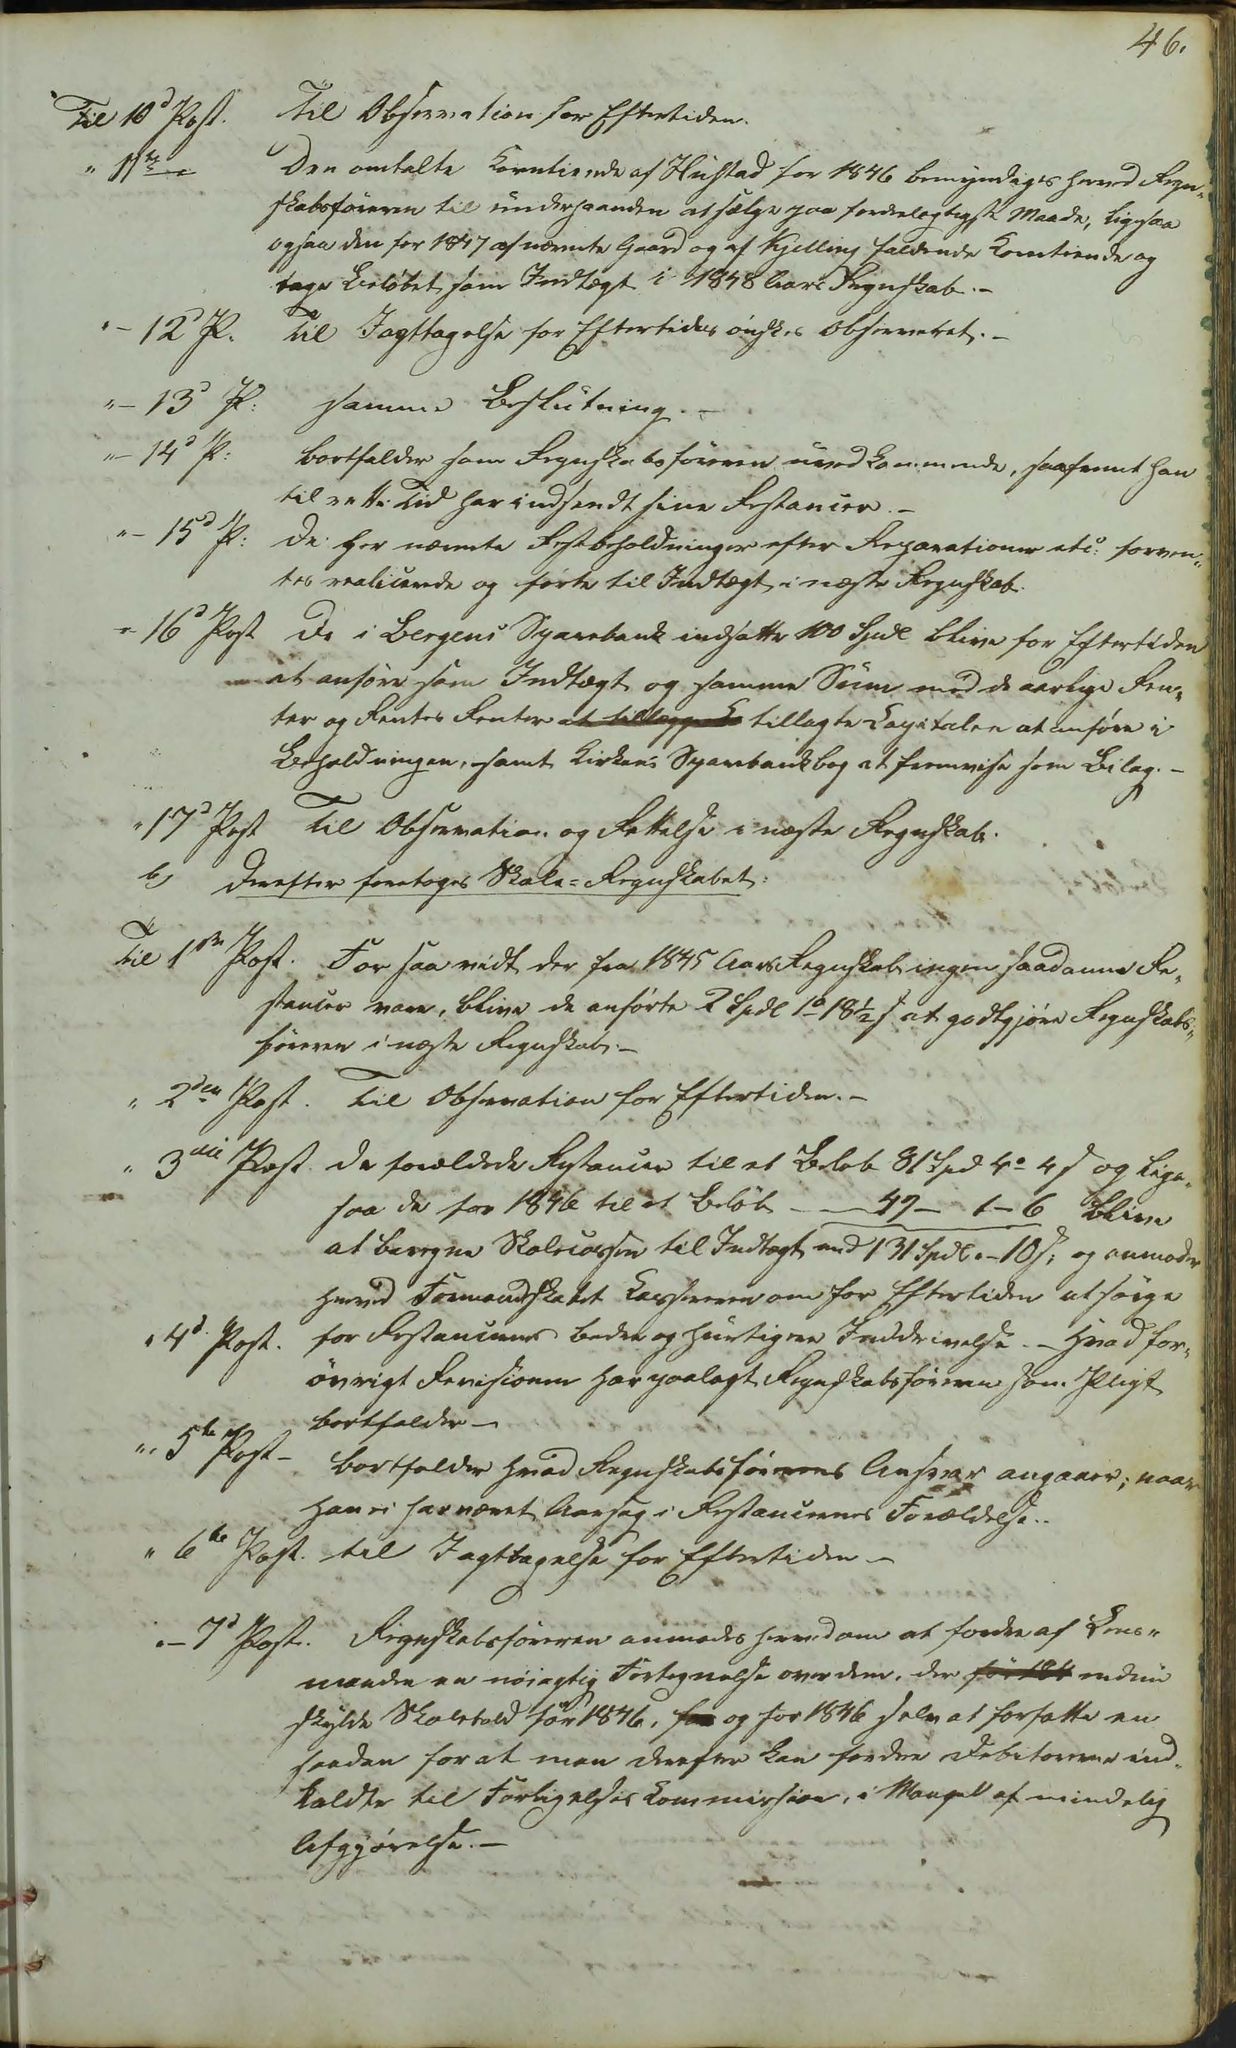 46.
Til 10d Post. Til Observation for Eftertiden.
" 11te — Den omtalte Korntiende af Hustad for 1846 bemyndiges herved Regn-
skabsføreren til underhaanden at sælge paa fordeelagtigste Maade, ligesaa
ogsaa den for 1847 af nævnte Gaard og af Kjelling faldende Korntiende og
tage Beløbet som Indtægt i 1848 Aars Regnskab. —
" — 12d P. Til Iagttagelse for Eftertiden ønskes Observeret. —
" — 13d P: samme Beslutning. —
" — 14d P: bortfalder som Regnskabsføreren uvedkommende, saafremt han
til rette Tid har indsendt sine Restancer. —
" — 15d P: De her nævnte Restbeholdninger efter Reparationer etc: forven-
tes realiserede og førte til Indtægt i næste Regnskab.
" 16d Post De i Bergens Sparebank indsatte 100 Spdl blive for Eftertiden
at anføre som Indtægt og samme Sum med de aarlige Ren-
ter og Rentes Renter at tillægges tillagte Capitalen at anføre i
Beholdningen, samt Kirkens Sparebankbog at fremvise som Bilag. —
" 17d Post Til Observation og Rettelse i næste Regnskab.
b) Derefter foretoges Skole-Regnskabet:
Til 1ste Post. For saavidt der fra 1845 Aars Regnskab ingen saadanne Re-
stancer vare, blive de anførte 2 Spdl 1o 18½ s at godtgjøre Regnskabs-
føreren i næste Regnskab. —
" 2den Post. Til Observation for Eftertiden. —
" 3die Post. De forældede Restancer til et Beløb 81 Spd 4o 4 s og lige-
saa de for 1846 til et Beløb — 49 — 1 — 6 blive
at beregne Skolecassen til Indtægt med 131 Spdl. " — 10 s; og anmoder
herved Formandskabet Kassereren om for Eftertiden at sørge
" 4d Post. for Restancernes bedre og hurtigere Inddrivelse. — Hvad for-
øvrigt Revisionen har paalagt Regnskabsføreren som Pligt
bortfalder —
" 5te Post — bortfalder hvad Regnskabsførerens Ansvar angaaer, naar
han ei har været Aarsag i Restancernes Forældelse..
" 6te Post. til Iagttagelse for Eftertiden —
" — 7d Post. Regnskabsføreren anmodes herved om at fordre af Lens-
manden en nøiagtig Fortegnelse over dem, der før 184 endnu
skylde Skoletold før 1846, for og for 1846 selv at forfatte en
saadan for at man derefter kan fordre Debitorerne ind-
kaldte til Forligelses Commission, i Mangel af mindelig
Afgjørelse. —